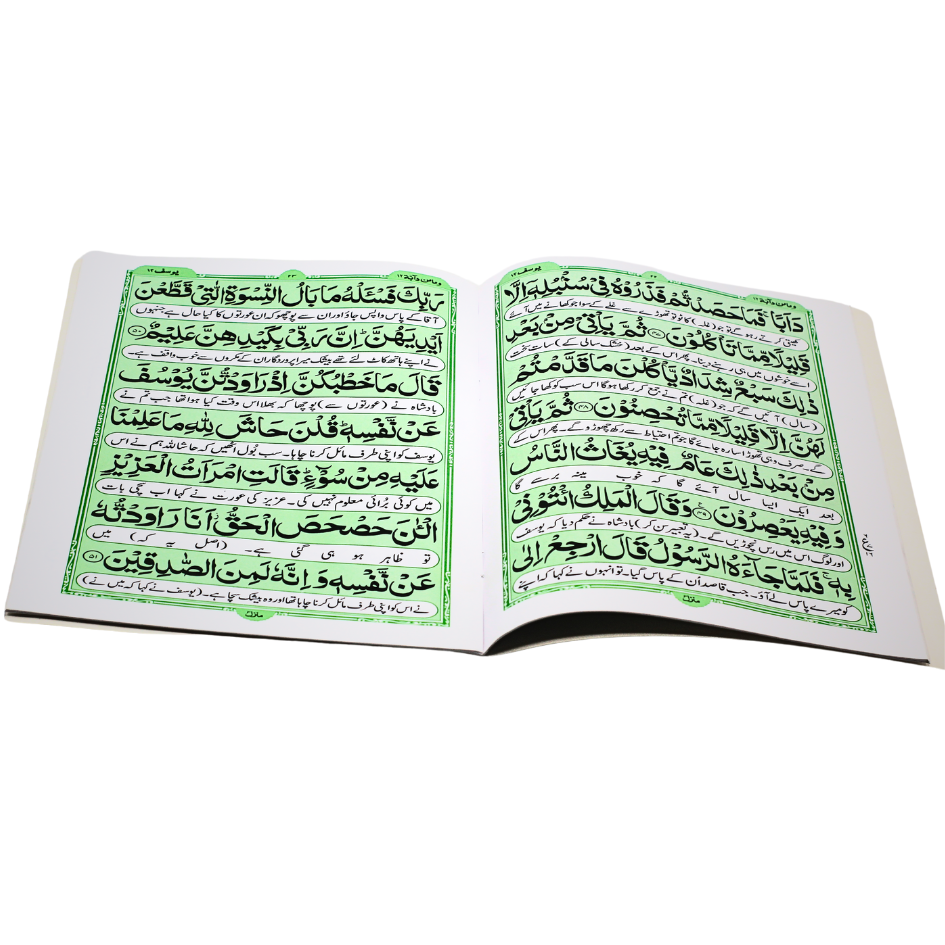 یوسف ۱۲
وما من دآبۃ ۱۲
دَاَبًا فَمَا حَصَدْتُّمْ فَذَرُوْهُ فِیْ سُنْۢبُلِهٖۤ اِلَّا
کھیتی کرتے رہو گے تو جو (غلہ) کاٹو تو تھوڑے سے غلے کے سوا جو کھانے میں آئے
قَلِیْلًا مِّمَّا تَاْكُلُوْنَ ۞ ثُمَّ یَاْتِیْ مِنْۢ بَعْدِ
اسے خوشوں میں ہی رہنے دینا۔ پھر اس کے بعد (خشک سالی کے) سات سخت
ذٰلِكَ سَبْعٌ شِدَادٌ یَّاْكُلْنَ مَا قَدَّمْتُمْ
(سال) آئیں گے کہ جو (غلہ) تم نے جمع کر رکھا ہوگا اس سب کو کھا جائیں
لَهُنَّ اِلَّا قَلِیْلًا مِّمَّا تُحْصِنُوْنَ ۞ ثُمَّ یَاْتِیْ
گے۔ صرف وہی تھوڑا سا رہ جائے گا جو تم احتیاط سے رکھ چھوڑو گے۔ پھر اس کے
مِنْۢ بَعْدِ ذٰلِكَ عَامٌ فِیْهِ یُغَاثُ النَّاسُ
بعد ایک ایسا سال آئے گا کہ خوب مینہ برسے گا
وَ فِیْهِ یَعْصِرُوْنَ ۞ وَ قَالَ الْمَلِكُ ائْتُوْنِیْ
اور لوگ اس میں رس نچوڑیں گے۔ (یہ تعبیر سن کر) بادشاہ نے حکم دیا کہ یوسف
بِهٖ ۚ فَلَمَّا جَآءَهُ الرَّسُوْلُ قَالَ ارْجِعْ اِلٰی
کو میرے پاس لے آؤ۔ جب قاصد اُن کے پاس گیا۔ تو انہوں نے کہا کہ اپنے
منزل
یوسف ۱۲
۲۳
وما من دآبۃ ۱۲
رَبِّكَ فَسْـَٔلْهُ مَا بَالُ النِّسْوَةِ الّٰتِیْ قَطَّعْنَ
آقا کے پاس واپس جاؤ اور ان سے پوچھو کہ ان عورتوں کا کیا حال ہے جنہوں
اَیْدِیَهُنَّ ؕ اِنَّ رَبِّیْ بِكَیْدِهِنَّ عَلِیْمٌ ۞۵۰
نے اپنے ہاتھ کاٹ لئے تھے بیشک میرا پروردگار ان کے مکروں سے خوب واقف ہے۔
قَالَ مَا خَطْبُكُنَّ اِذْ رَاوَدْتُّنَّ یُوْسُفَ
بادشاہ نے (عورتوں سے) پوچھا کہ بھلا اس وقت کیا ہوا تھا جب تم نے
عَنْ نَّفْسِهٖ ؕ قُلْنَ حَاشَ لِلّٰهِ مَا عَلِمْنَا
یوسف کو اپنی طرف مائل کرنا چاہا۔ سب بول اٹھیں کہ حاشا للہ ہم نے اس
عَلَیْهِ مِنْ سُوْٓءٍ ؕ قَالَتِ امْرَاَتُ الْعَزِیْزِ
میں کوئی بُرائی معلوم نہیں کی۔ عزیز کی عورت نے کہا اب سچی بات
الْـٰٔنَ حَصْحَصَ الْحَقُّ ؗ اَنَا رَاوَدْتُّهٗ
تو ظاہر ہو ہی گئی ہے۔ (اصل یہ کہ) میں
عَنْ نَّفْسِهٖ وَ اِنَّهٗ لَمِنَ الصّٰدِقِیْنَ ۞۵۱
نے اس کو اپنی طرف مائل کرنا چاہا تھا اور وہ بیشک سچا ہے۔ (یوسف نے کہا کہ میں نے)
منزل